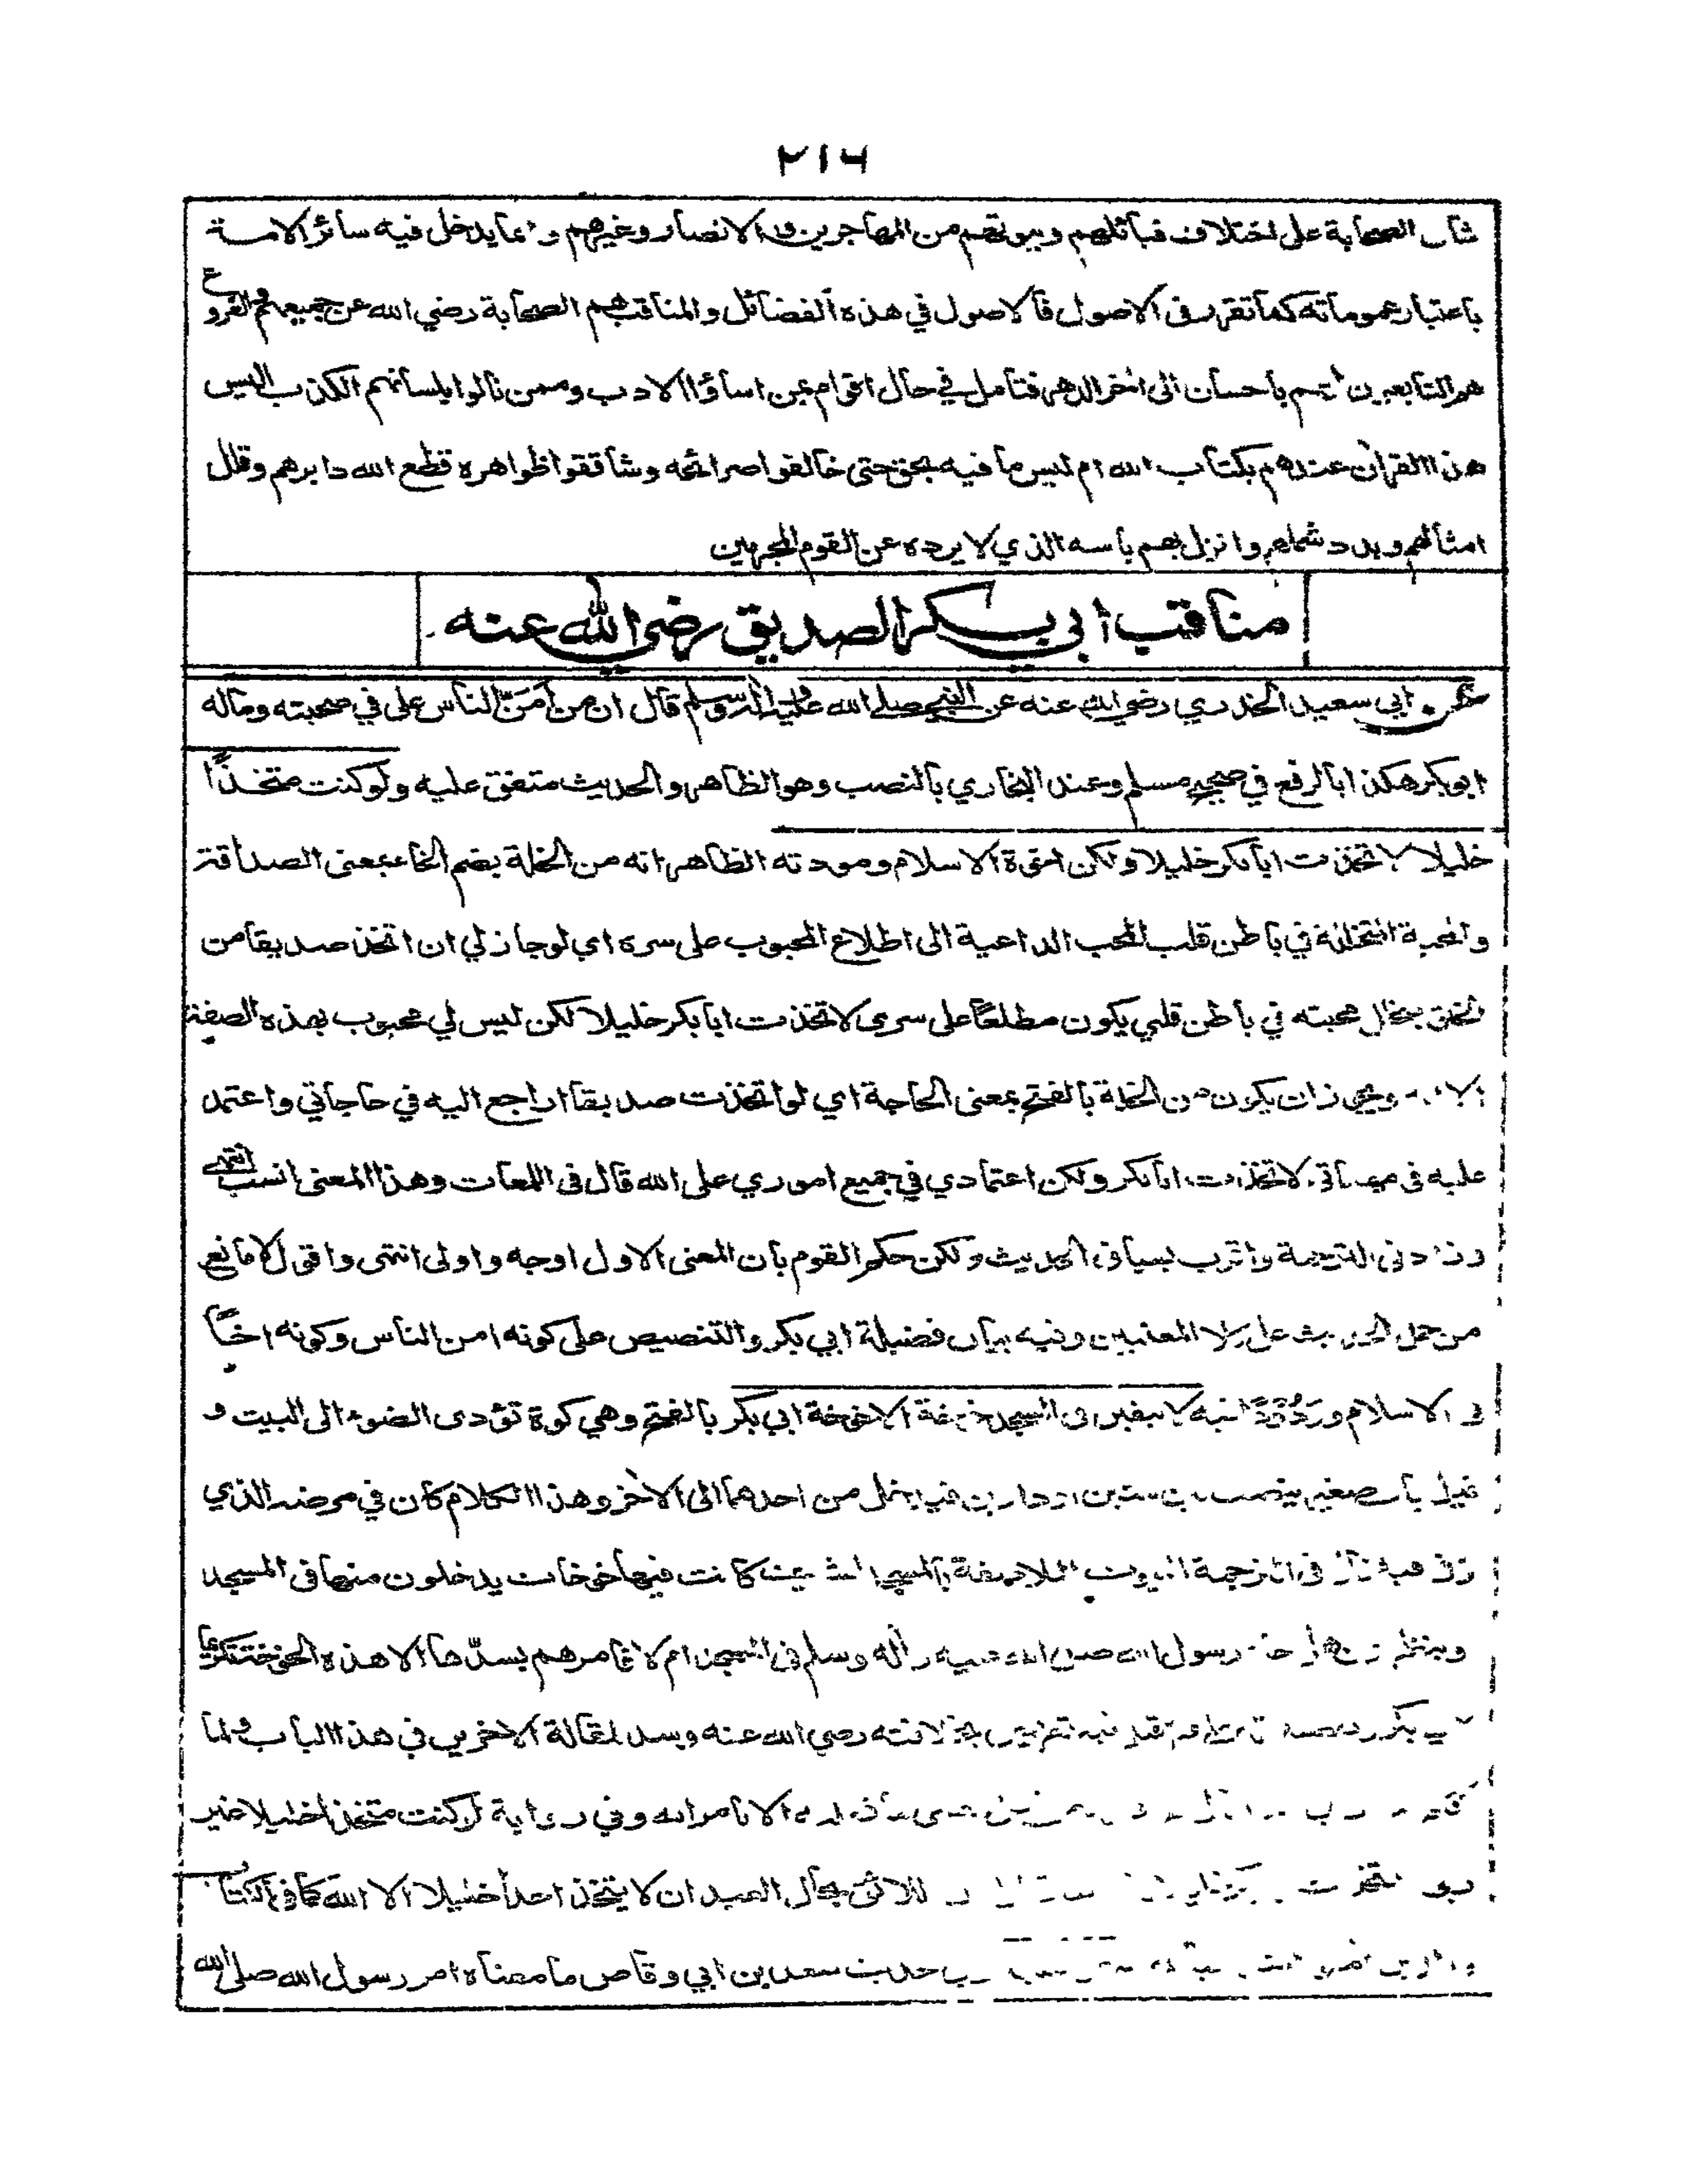 ٢١٦
شان الصحابة على اختلاف قبائلهم وبيوتهم من المهاجرين والانصار وغيرهم وانما يدخل فيه سائر الامة
باعتبار عموماته كما تقرر في الاصول فالاصول في هذه الفضائل والمناقب هم الصحابة رضي الله عن جميعهم والفروع
هم التابعون لهم باحسان الى اخر الدهر فتامل في حال اقوام ممن اساؤا الادب وممن نالوا بلسانهم الكذب اليس
هذا القران عندهم بكتاب الله ام ليس ما فيه بحق حتى خالفوا صرائحه وشاققوا ظواهره قطع الله دابرهم وقلل
امثالهم وبدد شملهم وانزل بهم باسه الذي لا يرده عن القوم المجرمين
مناقب ابي بكر الصديق رضي الله عنه
عن ابي سعيد الخدري رضي الله عنه عن النبي صلى الله عليه وآله وسلم قال ان من أمَنّ الناس علي في صحبته وماله
ابو بكر هكذا بالرفع في صحيح مسلم وعند البخاري بالنصب وهو الظاهر والحديث متفق عليه ولو كنت متخذًا
خليلا لاتخذت ابا بكر خليلا ولكن اخوة الاسلام ومودته الظاهر انه من الخلة بضم الخاء بمعنى الصداقة
والمحبة المتخللة في باطن قلب المحب الداعية الى اطلاع المحبوب على سره اي لو جاز لي ان اتخذ صديقا من
الخلق يتخلل محبته في باطن قلبي يكون مطلعًا على سري لاتخذت ابا بكر خليلا لكن ليس لي محبوب بهذه الصفة
الا الله ويجوز ان يكون من الخلة بالفتح بمعنى الحاجة اي لو اتخذت صديقا اراجع اليه في حاجاتي واعتمد
عليه في مهماتي لاتخذت ابا بكر ولكن اعتمادي في جميع اموري على الله قال في اللمعات وهذا المعنى انسب انتهى
وزاد في الترجمة واقرب بسياق الحديث ولكن حكم القوم بان المعنى الاول اوجه واولى انتهى واقول لا مانع
من حمل الحديث على كلا المعنيين وفيه بيان فضيلة ابي بكر والتنصيص على كونه امن الناس وكونه اخًا
في الاسلام ومَوَدُودًا فيه لا تبقين في المسجد خوخة الا خوخة ابي بكر بالفتح وهي كوة تؤدى الضوء الى البيت و
قيل باب صغير ينصب بين بيتين او دارين ليدخل من احدهما الى الاخر وهذا الكلام كان في مرضه الذي
توفي فيه قال في الترجمة البيوت الملاصقة بالمسجد الشريف كانت فيها خوخات يدخلون منها في المسجد
وينظرون منها رسول الله صلى الله عليه وآله وسلم في المسجد ام لا فامرهم بسدّها الا هذه الخوخة تكريما
بكر فيه تعريض بخلافته رضي الله عنه وسد لمقالة الاخرين في هذا الباب ولما
الا بامر الله وفي رواية لو كنت متخذا خليلا غير
ربي لاتخذت اللائق بحال العبد ان لا يتخذ احدا خليلا الا الله كما في الكتاب
حديث سعد بن ابي وقاص ما معناه امر رسول الله صلى الله